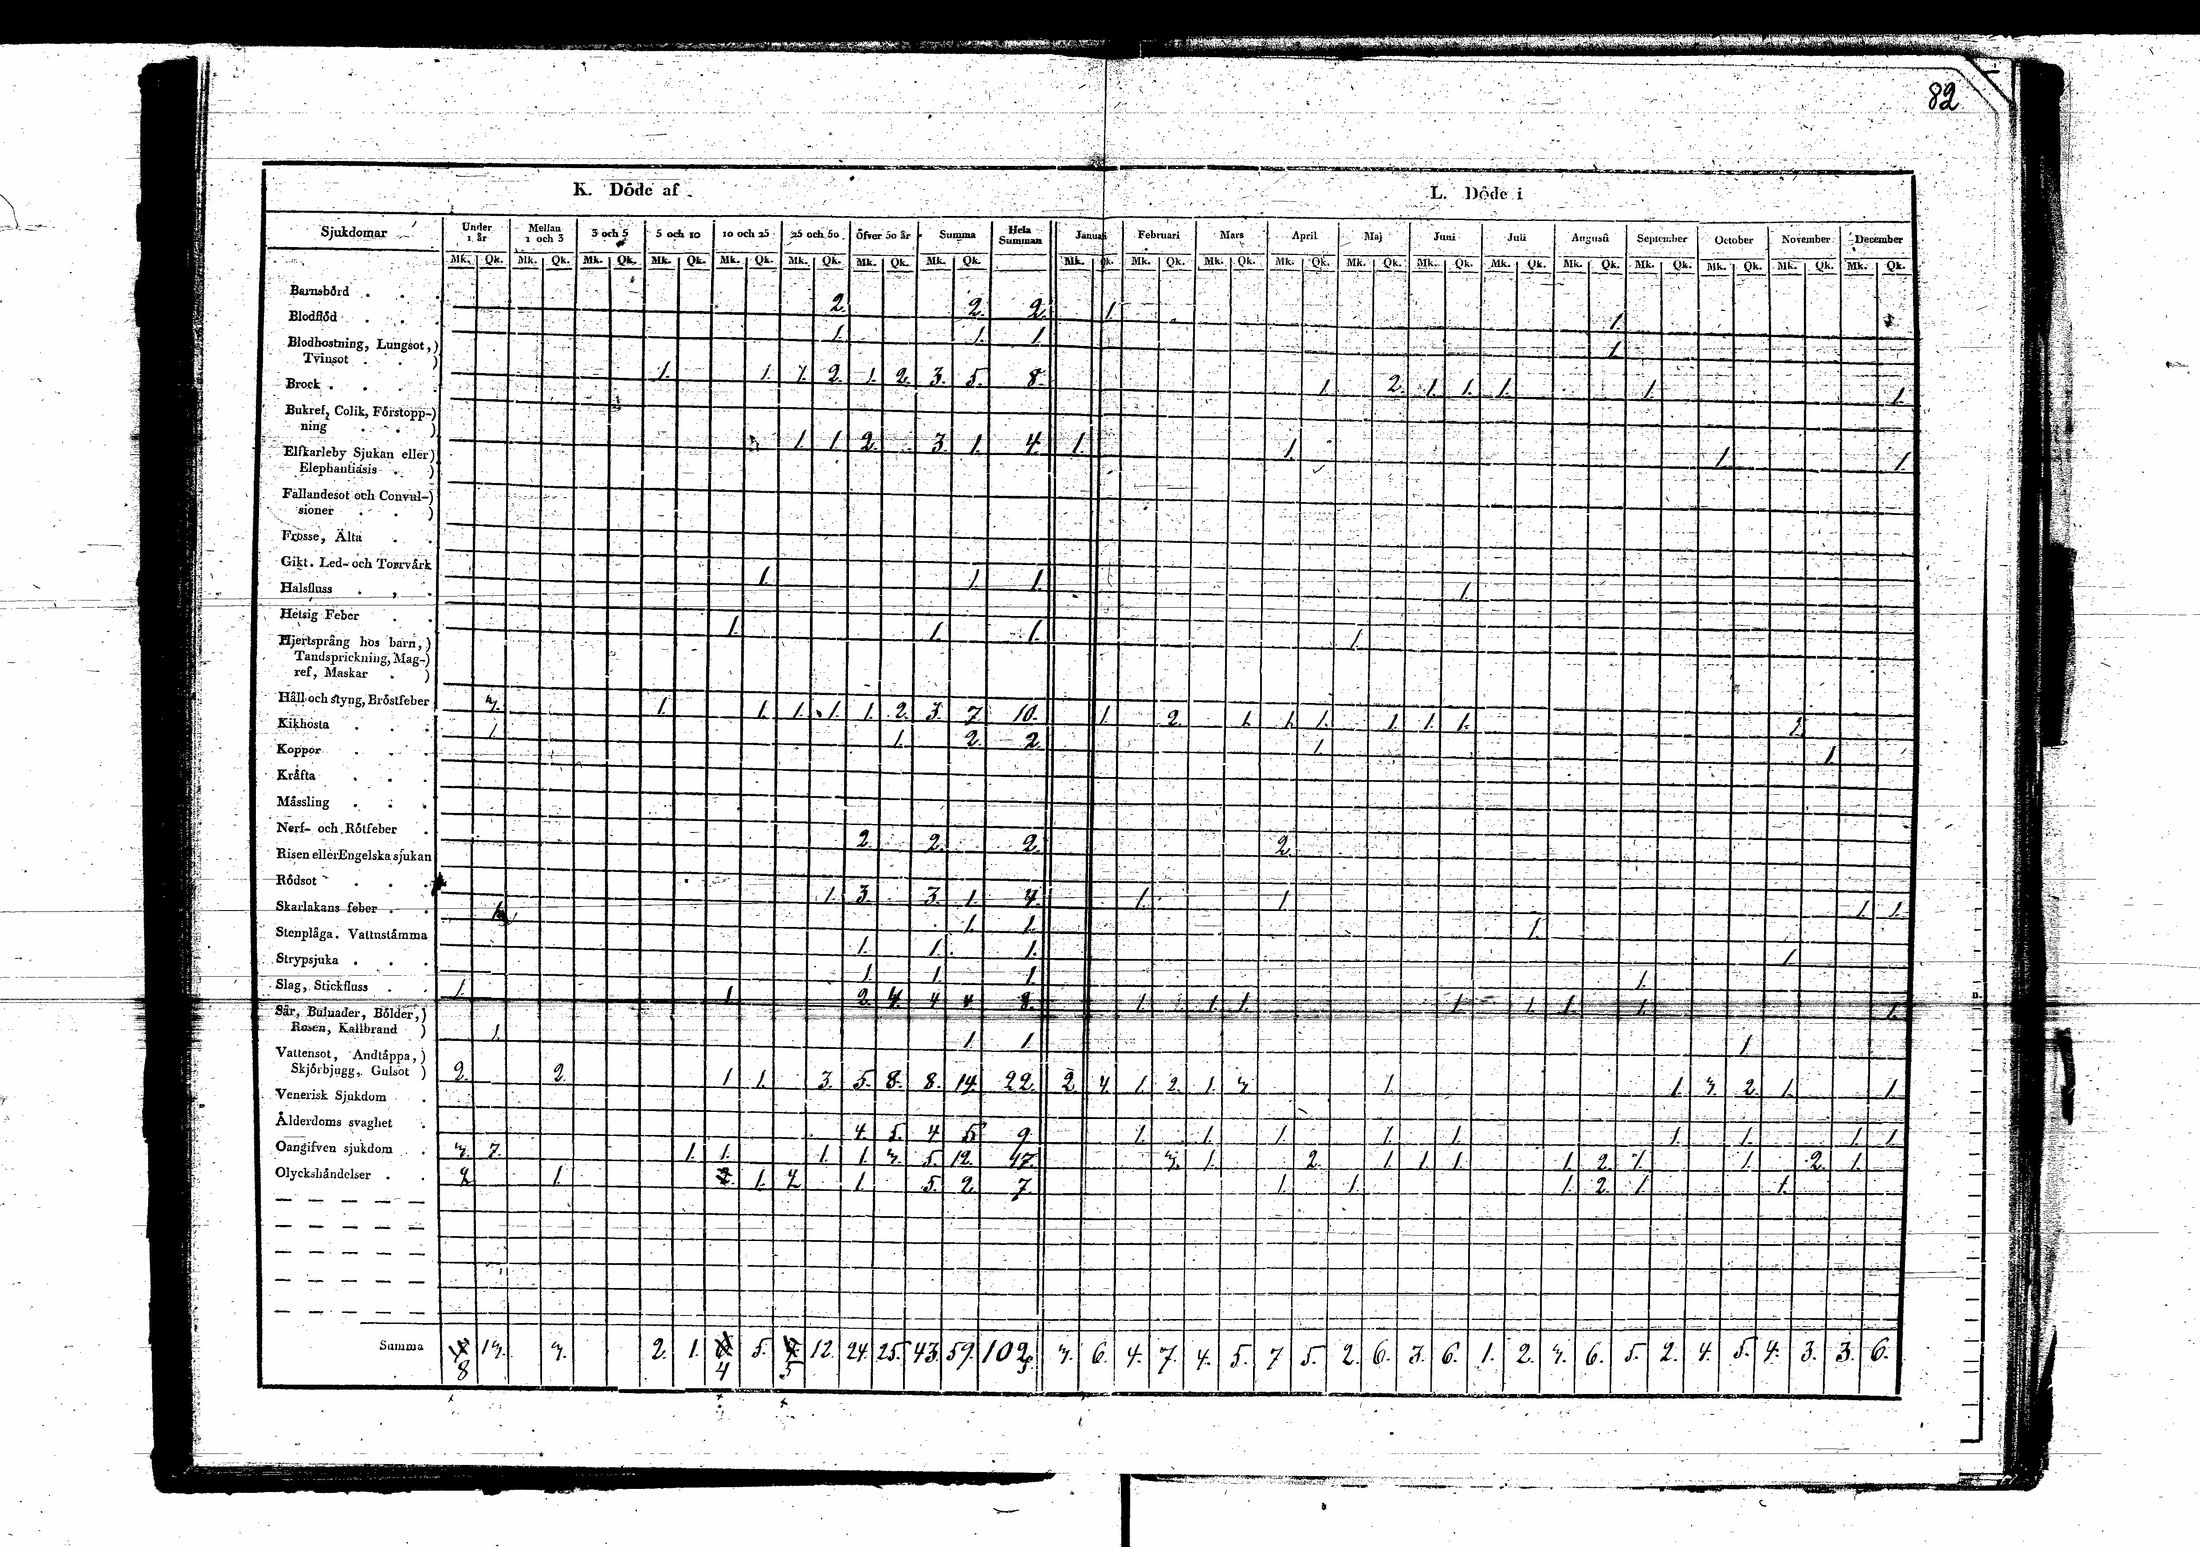 82
K. Döde af
L. Döde i
Sjukdomar Under 1 år Mellan 1 och 3 3 och 5 5 och 10 10 och 25 25 och 50 Öfver 50 år Summa Hela Summan Januari Februari Mars April Maj Juni Juli Augusti September October November December
Mk. Qk. Mk. Qk. Mk. Qk. Mk. Qk. Mk. Qk. Mk. Qk. Mk. Qk. Mk. Qk. Mk. Qk. Mk. Qk. Mk. Qk. Mk. Qk. Mk. Qk. Mk. Qk. Mk. Qk. Mk. Qk. Mk. Qk. Mk. Qk. Mk. Qk. Mk. Qk.
Barnsbörd . . . 2. 2. 2. 1. 1.
Blodflöd . . . 1. 1. 1. 1.
Blodhostning, Lungsot,)
Tvinsot . . . ) 1. 1. 1. 2. 1. 2. 3. 5. 8. 1. 2. 1. 1. 1. 1. 1.
Brock . . . .
Bukref, Colik, Förstopp-)
ning . . . ) 1. 1. 2. 3. 1. 4. 1. 1. 1. 1.
Elfkarleby Sjukan eller)
Elephantiasis . )
Fallandesot och Convul-)
sioner . . )
Frosse, Älta . .
Gikt. Led- och Torrvärk 1. 1 1.  1.
Halsfluss . , .
Hetsig Feber . . 1. 1. 1. 1.
Hjertsprång hos barn,)
Tandsprickning, Mag-)
ref, Maskar . )
Håll och styng, Bröstfeber 3. 1. 1. 1. 1. 1. 2. 3. 7. 10. 1. 2. 1. 1. 1. 1. 1. 1. 1.
Kikhosta . . . 1. 1. 2. 2. 1. 1.
Koppor . . .
Kräfta . . .
Mässling . . .
Nerf- och Rötfeber . 2. 2. 2. 2.
Risen eller Engelska sjukan
Rödsot . . . 1. 3. 3. 1. 4. 1. 1. 1. 1.
Skarlakans feber . . 1. 1. 1. 1.
Stenplåga. Vattustämma 1. 1. 1. 1.
Strypsjuka . . . 1. 1. 1. 1.
Slag, Stickfluss . . 1. 1. 2. 4. 4. 4. 8. 1. 1. 1. 1. 1. 1. 1. 1.
Sår, Bulnader, Bölder,)
Rosen, Kallbrand ) 1. 1. 1. 1
Vattensot, Andtäppa,)
Skjörbjugg, Gulsot ) 2. 2. 1 1. 3. 5. 8. 8. 14. 22. 2. 4. 1. 2. 1. 3. 1. 1. 3. 2. 1. 1.
Venerisk Sjukdom .
Ålderdoms svaghet . 4. 5. 4. 5. 9. 1. 1. 1. 1. 1. 1. 1. 1. 1.
Oangifven sjukdom . 3. 7. 1. 1. 1. 1. 3. 5. 12. 17. 3. 1. 2. 1. 1. 1. 1. 2. 1. 1. 2. 1.
Olyckshändelser . . 2 1. 1. 1. 5. 2. 7. 1. 1. 1. 2. 1. 1.
Summa 8 13. 3. 2. 1. 4 5. 5 12. 24. 25. 43. 59. 102. 3. 6. 4. 7. 4. 5. 7 5. 2. 6. 3. 6. 1. 2. 3. 6. 5. 2. 4. 5. 4. 3. 3. 6.